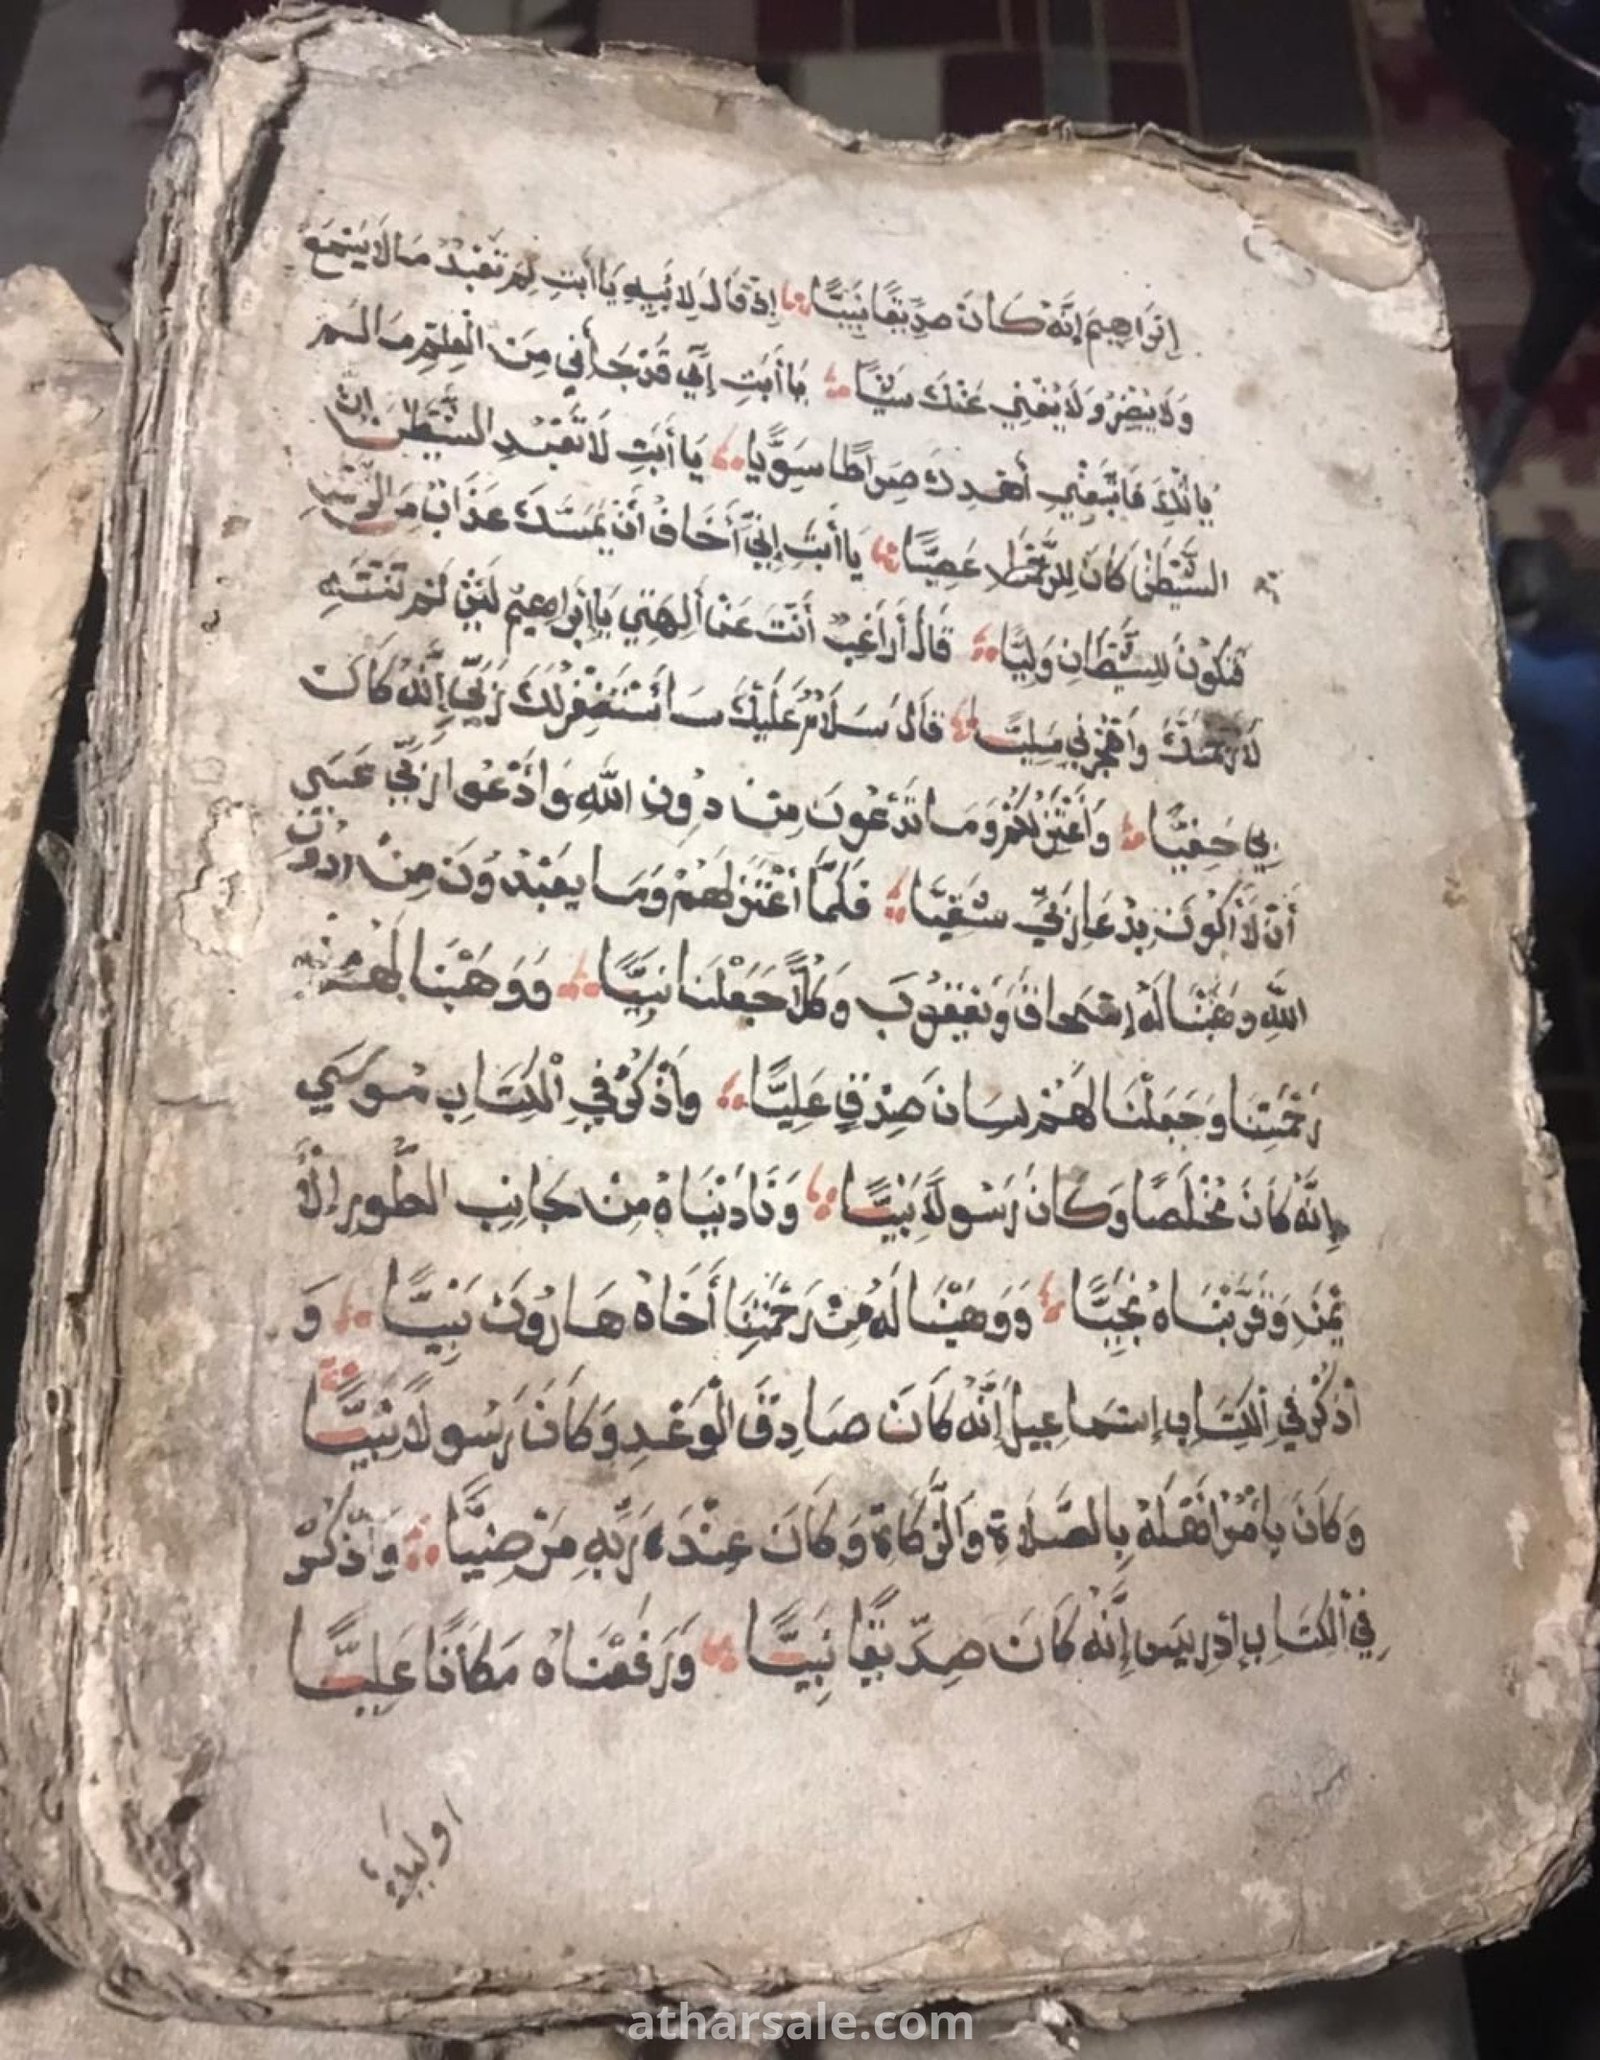 إبراهيم إنه كان صديقا نبيا إذ قال لأبيه يا أبت لم تعبد ما لا يسمع
ولا يبصر ولا يغني عنك شيئا يا أبت إني قد جاءني من العلم ما لم
يأتك فاتبعني أهدك صراطا سويا يا أبت لا تعبد الشيطن إن
الشيطن كان للرحمن عصيا يا أبت إني أخاف أن يمسك عذاب من الرحمن
فتكون للشيطان وليا قال أراغب أنت عن ألهتي يا إبراهيم لئن لم تنته
لأرجمنك واهجرني مليا قال سلام عليك سأستغفر لك ربي إنه كان
بي حفيا وأعتزلكم وما تدعون من دون الله وأدعوا ربي عسى
أن لا أكون بدعاء ربي شقيا فلما أعتزلهم وما يعبدون من دون
الله وهبنا له إسحاق ويعقوب وكلا جعلنا نبيا ووهبنا لهم من
رحمتنا وجعلنا لهم لسان صدق عليا واذكر في الكتاب موسى
إنه كان مخلصا وكان رسولا نبيا وناديناه من جانب الطور الأ
يمن وقربناه نجيا ووهبنا له من رحمتنا أخاه هارون نبيا و
أذكر في الكتاب إسماعيل إنه كان صادق الوعد وكان رسولا نبيا
وكان يأمر أهله بالصلاة والزكاة وكان عند ربه مرضيا واذكر
في الكتاب إدريس إنه كان صديقا نبيا ورفعناه مكانا عليا
اوليك
atharsale.com